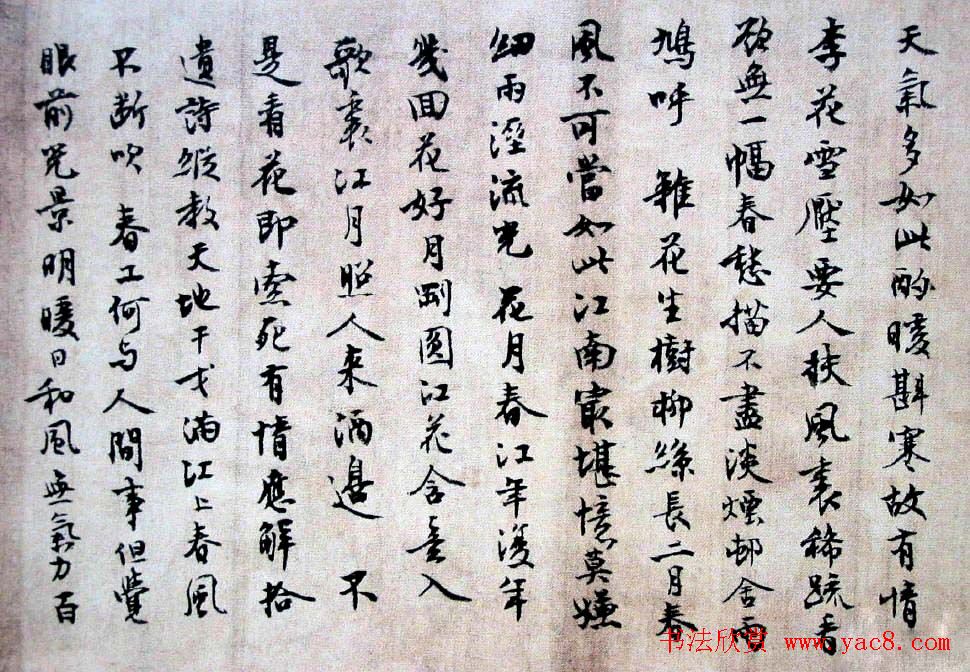 天氣多如此酌暖斟寒故有情
李花雪壓要人扶風裏稀疏看
却無一幅春愁描不盡淡煙邨舍雨
鳩呼 雜花生樹柳絲長二月春
風不可當如此江南最堪憶莫嫌
細雨溼流光 花月春江年復年
幾回花好月剛圓江花含玉入
歌裏江月照人來酒邊 不
是看花即索死有情應解拾
遺詩縱教天地干戈滿江上春風
不斷吹 春工何与人間事但覺
眼前光景明暖日和風無氣力百
书法欣赏 www.yac8.com